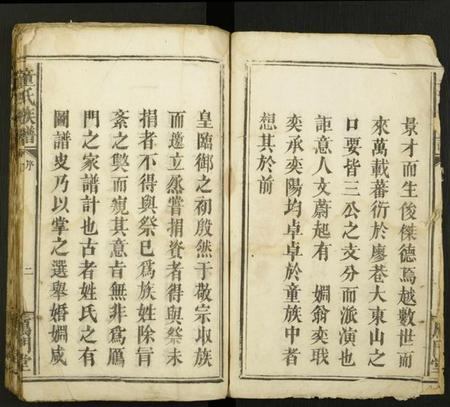 景才而生俊傑德焉越數世而
來萬載蕃衍於廖巷大東山之
口要皆三公之支分而派演也
詎意人文蔚起有 嫻翁奕戢
奕承奕陽均卓卓於童族中者
想其於前
皇臨御之初殷然于敬宗收族
而邀立烝嘗捐資者得與祭未
捐者不得與祭已爲族姓除冒
紊之獘而究其意旨無非爲鴈
門之家譜計也古者姓氏之有
圖譜史乃以掌之選舉婚姻咸
童氏族譜
序
二
鴈門堂